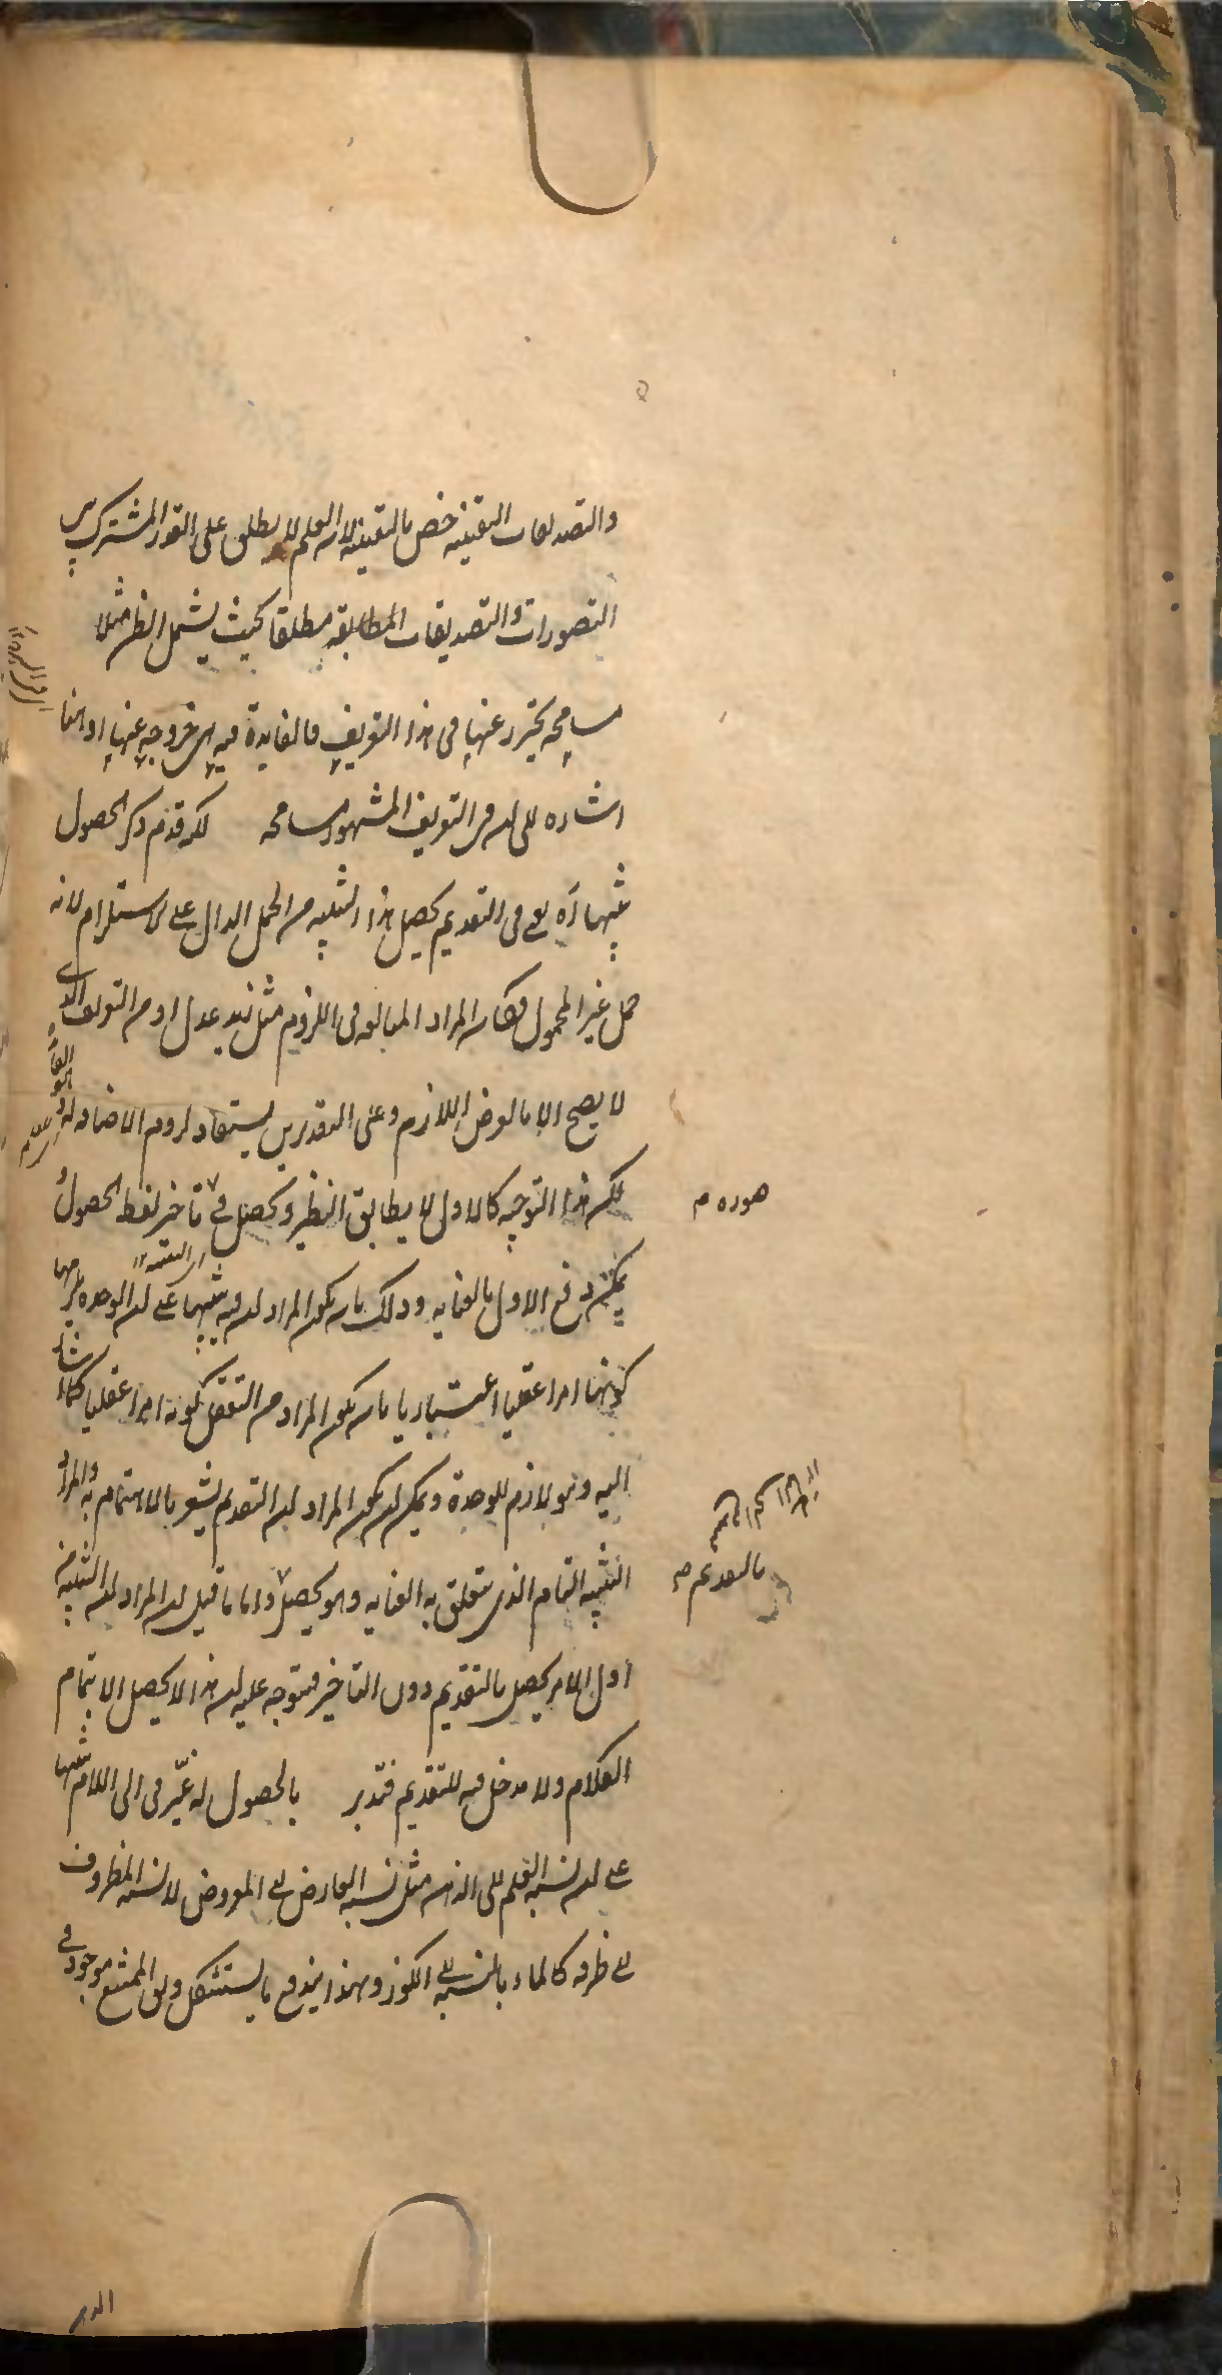 والتصديقات اليقينيه خص باليقينيه لان العلم لا يطلق على القدر المشترك بين
التصورات والتصديقات المطابقة مطلقا بحيث يشمل الظن مثلا
مسامحه يحترز عنها فى هذا التعريف فالفايدة فيه خروجه عنها او انها
اشاره الى ان فى التعريف المشهور مسامحه لكن قدم ذكر الحصول
تنبيها اه يعنى فى التقديم يحصل هذا التنبيه من الحمل الدال على الاستلزام لانه
حمل غير المحمول فكان المراد المبالغه فى اللزوم مثل زيد عدل او من التعريف الذى
لا يصح الا بالعرض اللازم وعلى التقديرين يستفاد لزوم الاضافه له
لكن هذا التوجيه كالاول لا يطابق النظير ويحصل فى تاخير لفظ الحصول و
يمكن دفع الاول بالعنايه وذلك بان يكون المراد ان فيه تنبيها على ان الوحدة يلزمها
كونها امرا عقليا اعتباريا بان يكون المراد من التعقل كونه امرا عقليا كما اشار
اليه وهو لازم للوحدة ويمكن ان يكون المراد ان التقديم يشعر بالاهتمام به والمراد
التنبيه التام الذى يتعلق به العنايه وهو يحصل واما ما قيل ان المراد ان التنبيه من
اول الامر يحصل بالتقديم دون التاخير فيتوجه عليه ان هذا لا يحصل الا بتمام
الكلام ولا مدخل فيه للتقديم فتدبر بالحصول له غيّر فى الى اللام تنبيها
على ان نسبة العلم الى الذهن مثل نسبة العارض الى المعروض لا نسبة المظروف
الى ظرفه كالماء بالنسبة الى الكوز وبهذا يندفع ما يستشكل وان الممتنع موجود فى
بالتقديم صح
الذهن